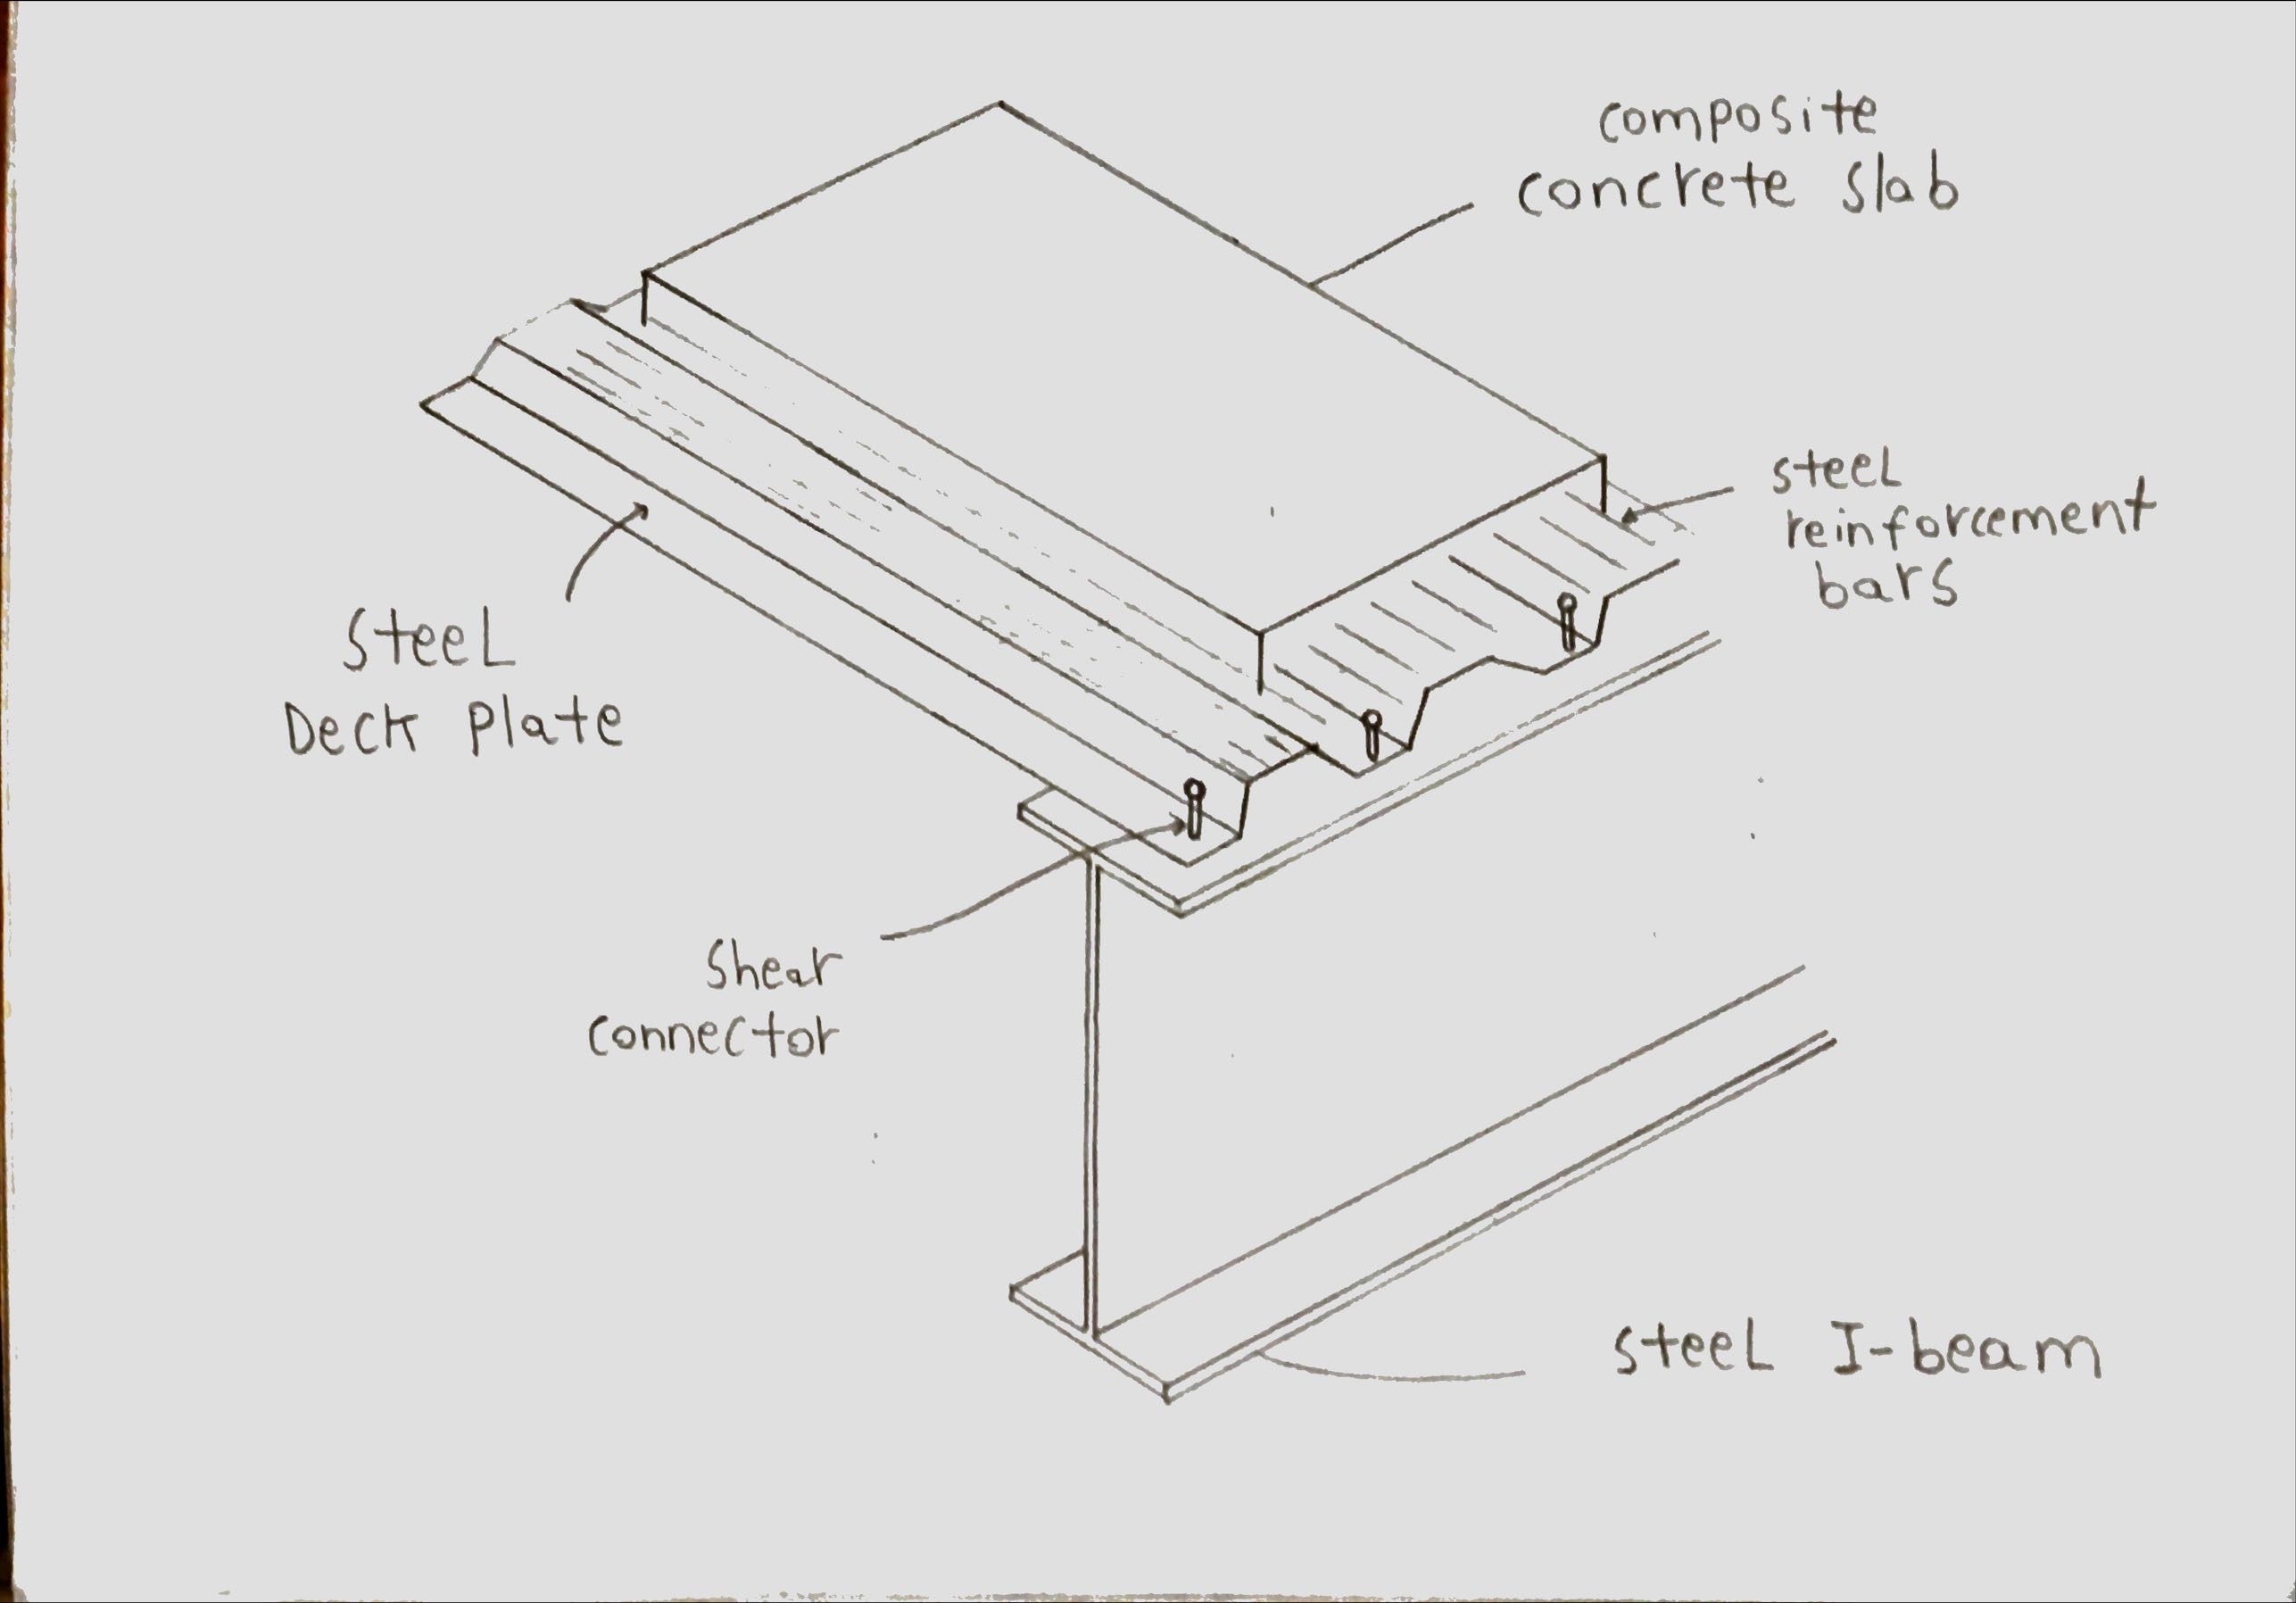 composite
concrete slab
steel
reinforcement
bars
Steel
Deck Plate
Shear
connector
steel I-beam